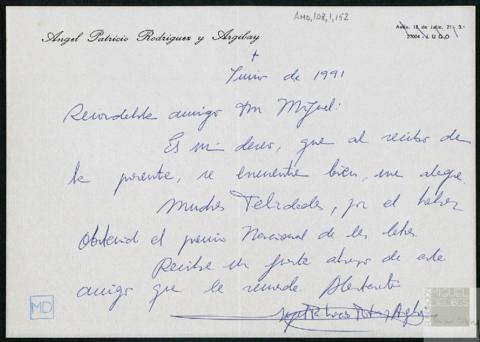 AMD,108,1,152
Angel Patricio Rodriguez y Argibay
Avda. 18 de Julio, 21 - 3.º
27004 LUGO
+
Junio de 1991
Recordable amigo Don Miguel:
Es mi deseo, que al recibo de
la presente, se encuentre bien, me alegro.
Muchas Felicidades, por el haber
Obtenido el premio Nacional de las letras.
Reciba un fuerte abrazo de este
amigo que le recuerda. Atentamente
MD
MIGUEL
DELIBES